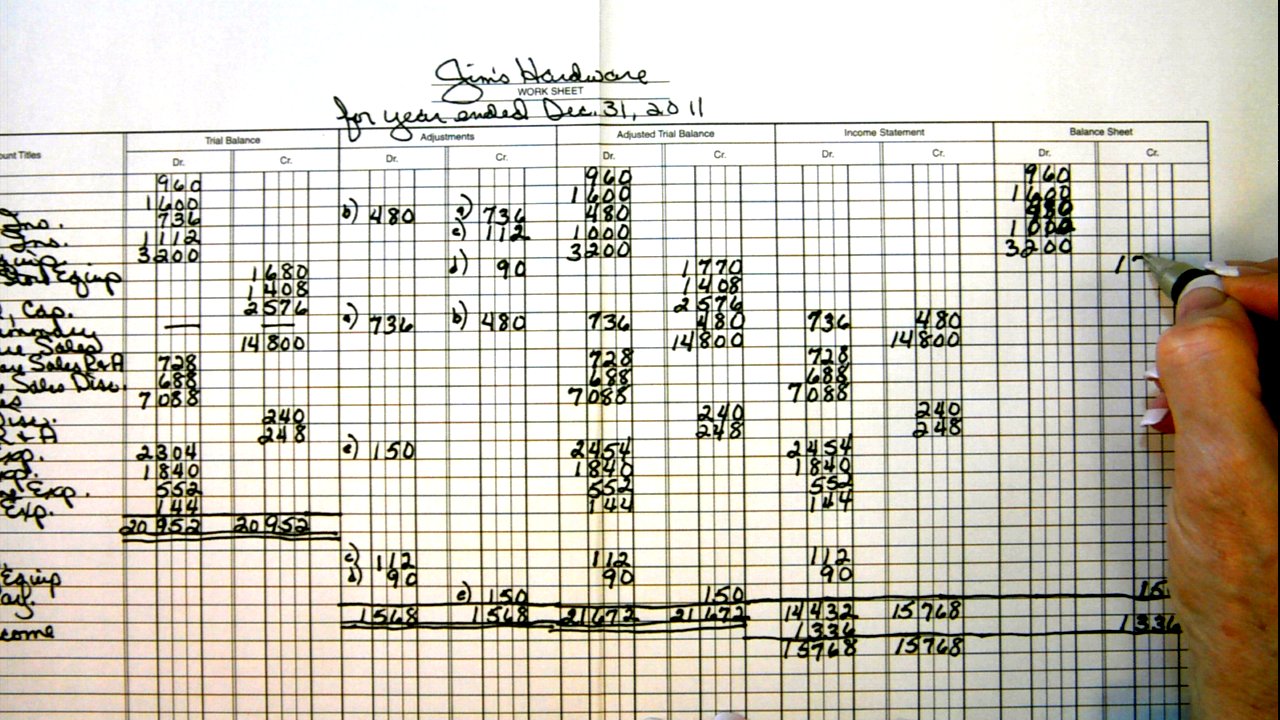 Jim's Hardware
WORK SHEET
for year ended Dec. 31, 2011
Trial Balance Adjustments Adjusted Trial Balance Income Statement Balance Sheet
ount Titles Dr. Cr. Dr. Cr. Dr. Cr. Dr. Cr. Dr. Cr.
960 960 960
1600 1600 1600
Ins. 736 b) 480 a) 736 480 480
Ins. 1112 c) 112 1000 1000
3200 3200 3200
Equip 1680 d) 90 1770 17
1408 1408
Cap. 2576 2576
— — a) 736 b) 480 736 480 736 480
Sales 14800 14800 14800
Sales R+A 728 728 728
Sales Disc. 688 688 688
7088 7088 7088
240 240 240
R + A 248 248 248
Exp. 2304 e) 150 2454 2454
Exp. 1840 1840 1840
Exp. 552 552 552
Exp. 144 144 144
20952 20952
c) 112 112 112
Equip d) 90 90 90
Pay. e) 150 150 15
1568 1568 21672 21672 14432 15768
come 1336 1336
15768 15768